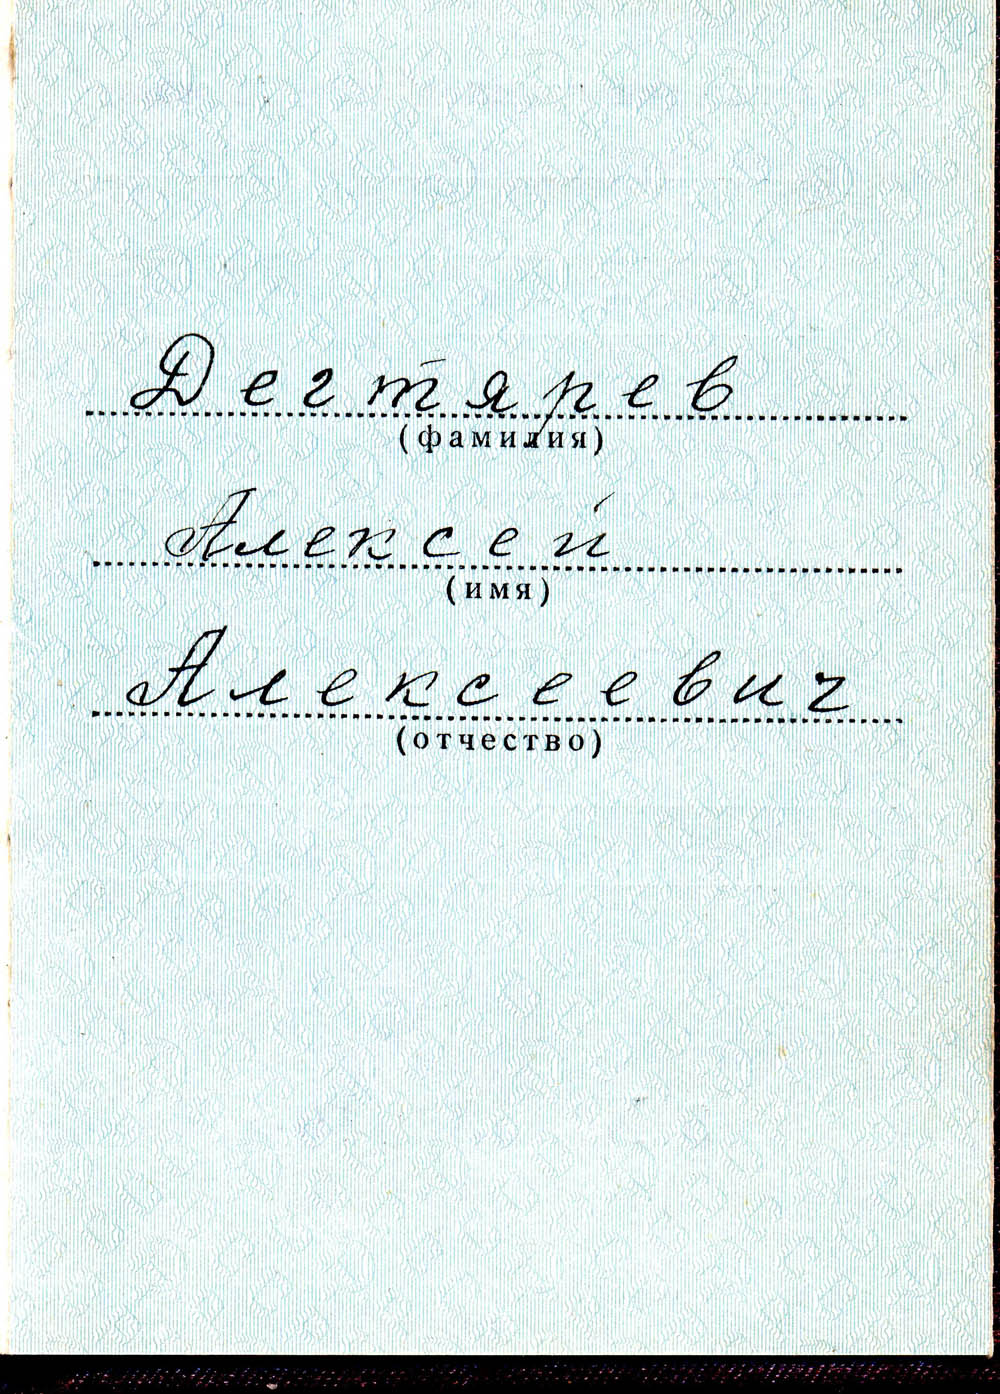 Дегтярев
(фамилия)
Алексей
(имя)
Алексеевич
(отчество)